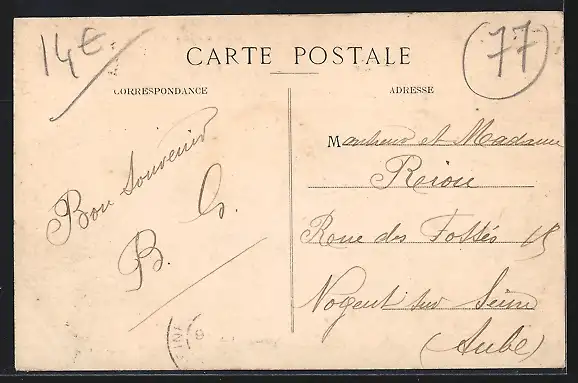 14€
77
CARTE POSTALE
CORRESPONDANCE
ADRESSE
Bon Souvenir
B. G.
Monsieur et Madame
Riou
Roue des Fossés 15
Nogent sur Seine
(Aube)